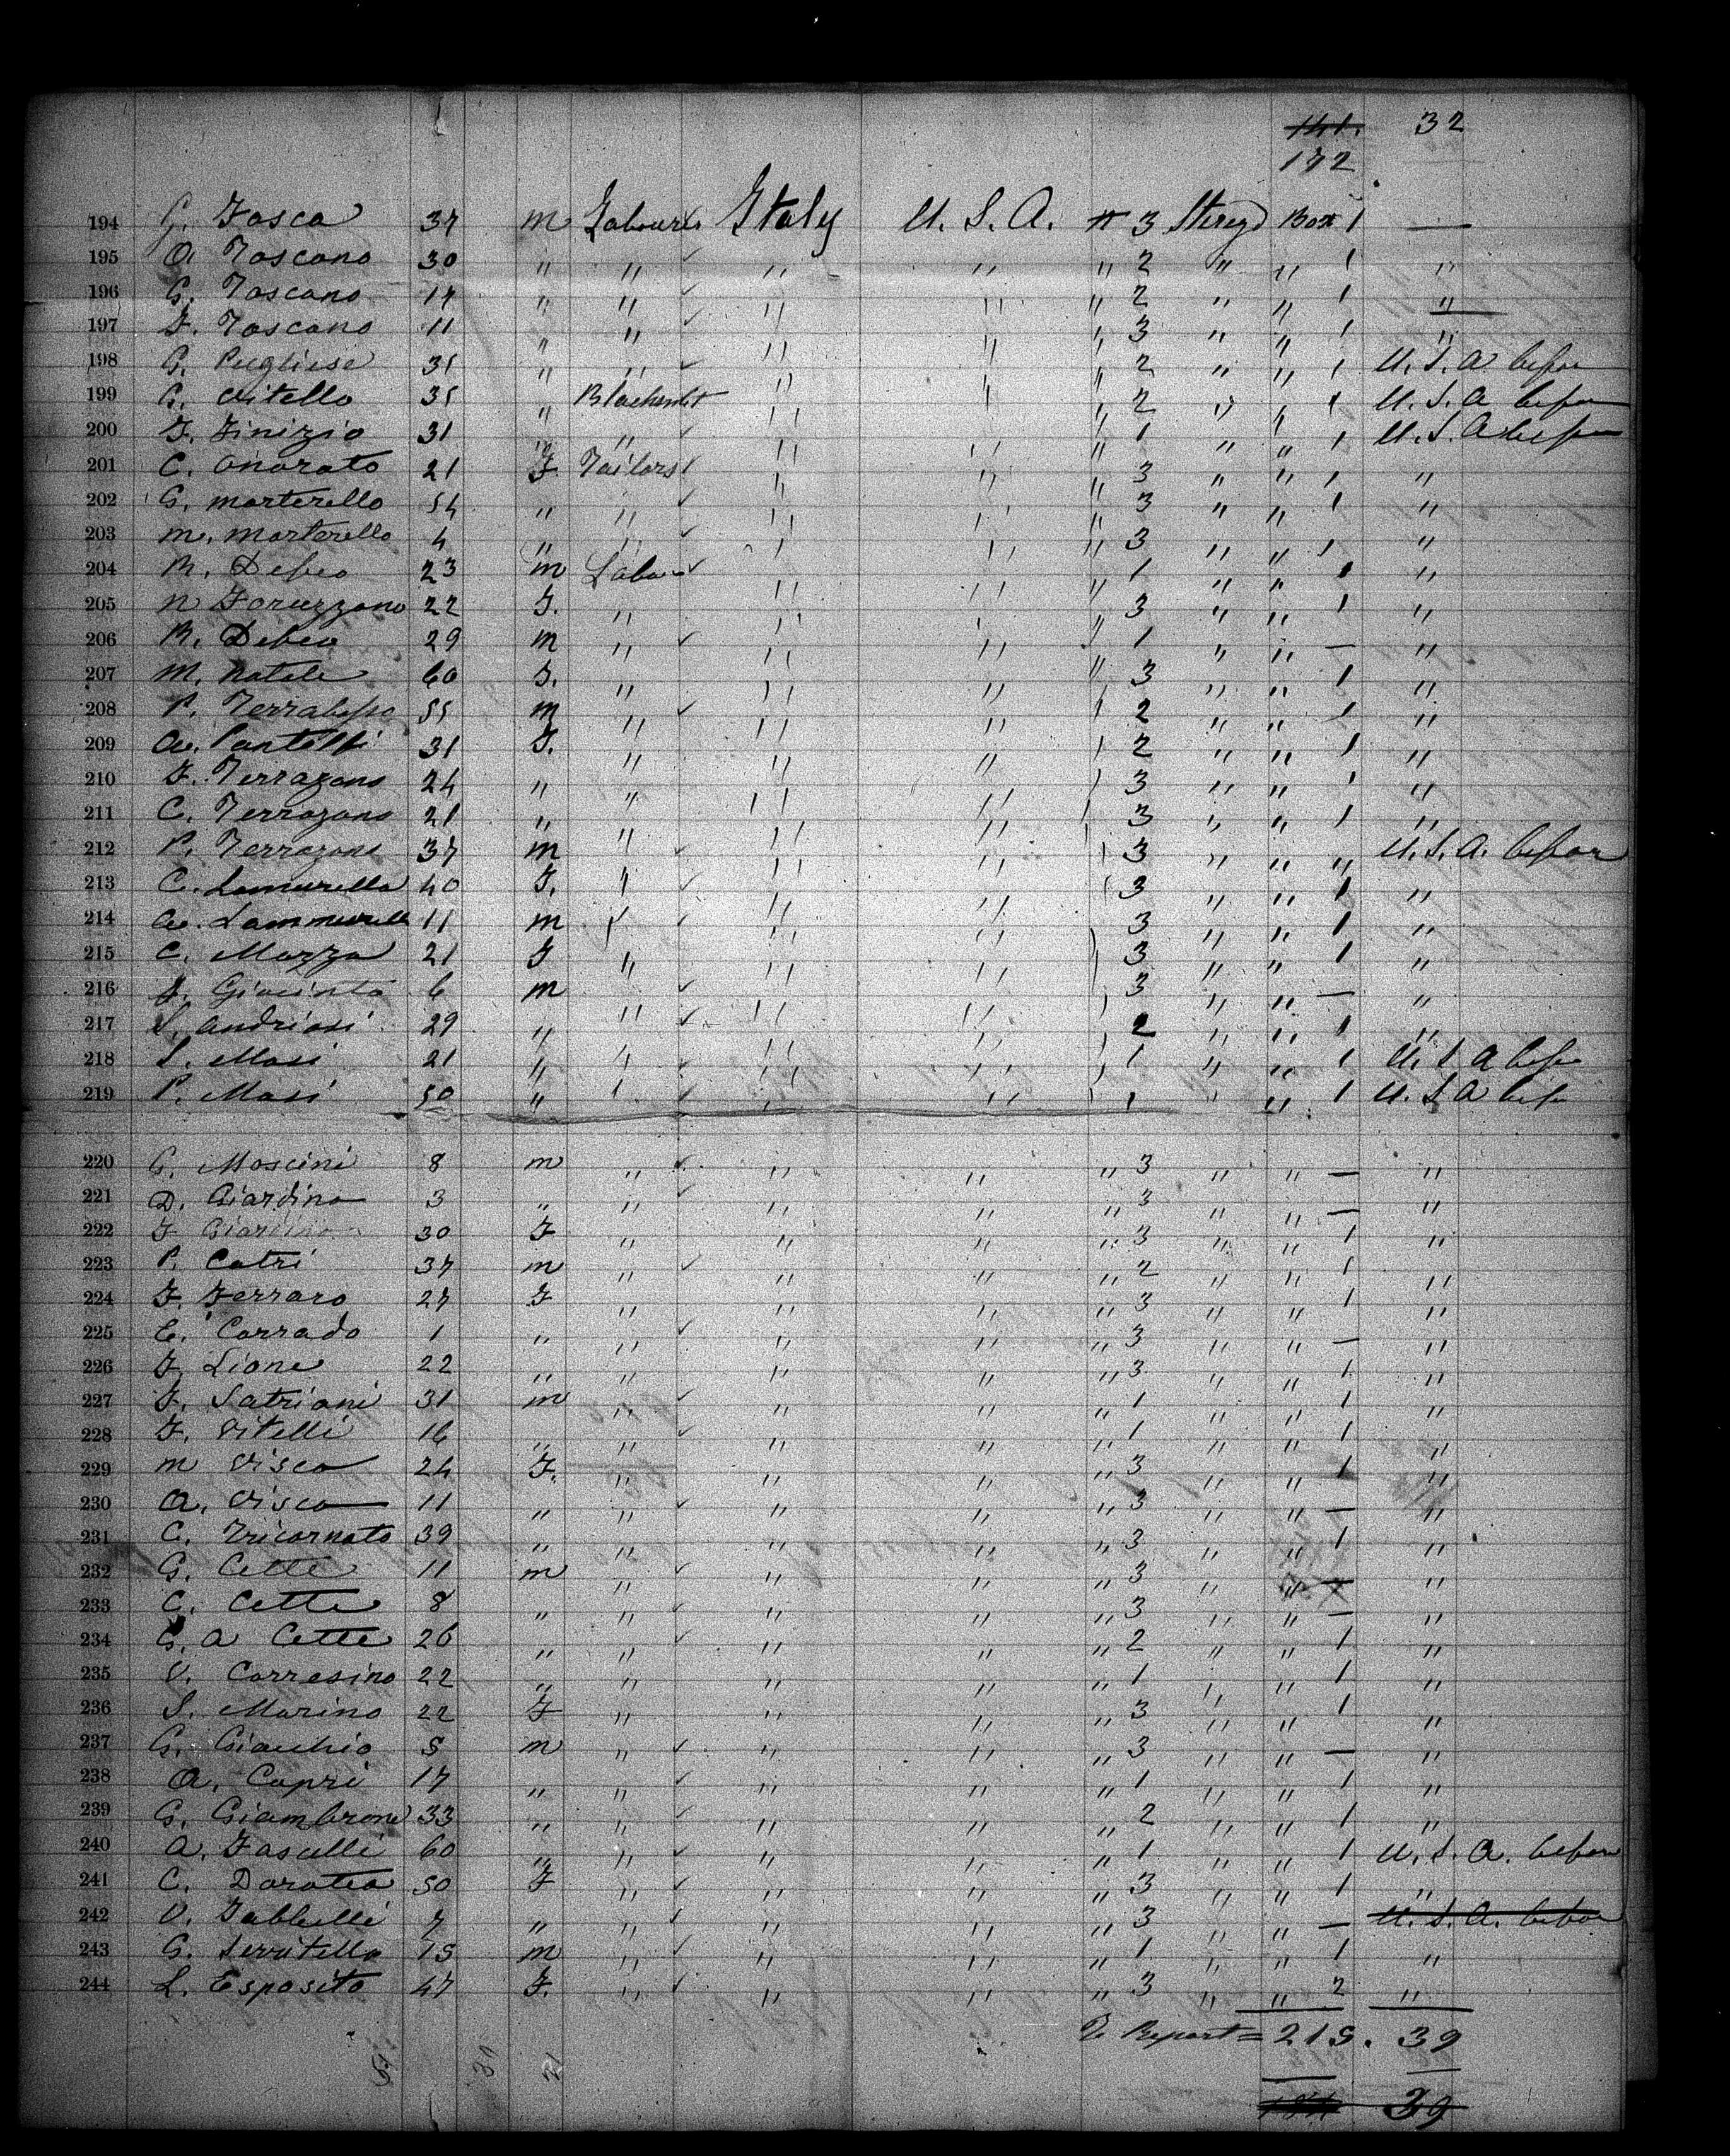 141. 32
172
194 G. Fosca 37 m Labourer Italy U. S. A. # 3 Sterege Box 1 —
195 A. Toscano 30 " " " " " 2 " " 1 "
196 G. Toscano 17 " " " " " 2 " " 1 "
197 F. Toscano 11 " " " " " 3 " " 1 "
198 G. Pugliese 31 " " " " " 2 " " 1 U. S. A before
199 G. Vitello 35 " Blacksmit " " " 2 " " 1 U. S. A before
200 F. Finizio 31 " " " " " 1 " " 1 U. S. A before
201 C. Onorato 21 F Tailors " " " 3 " " 1 "
202 G. Marterello 54 " " " " " 3 " " 1 "
203 M. Marterello 4 " " " " " 3 " " 1 "
204 R. Defeo 23 m Labour " " " 1 " " 1 "
205 N Foruzzano 22 F. " " " " 3 " " 1 "
206 R. Defeo 29 m " " " " 1 " " — "
207 M. Natale 60 F. " " " " 3 " " 1 "
208 P. 55 m " " " " 2 " " 1 "
209 A. 31 F. " " " " 2 " " 1 "
210 F. Terrazano 24 " " " " " 3 " " 1 "
211 C. Terrazano 21 " " " " " 3 " " 1 "
212 P. Terrazano 37 m " " " " 3 " " " U. S. A. before
213 C. Lamurella 40 F. " " " " 3 " " 1 "
214 A. Lammurella 11 m " " " 3 " " 1 "
215 C. Mazza 21 F " " " " 3 " " 1 "
216 F. Giacinto 6 m " " " " 3 " " — "
217 S. Andriosi 29 " " " " " 2 " " 1 "
218 S. Masi 21 " " " " " 1 " " 1 U. S A befo
219 P. Masi 50 " " " " " 1 " " 1 U. S A befo
220 G. Moscini 8 m " " " " 3 " " — "
221 D. Giardino 3 " " " " " 3 " " — "
222 F Giardino 30 F " " " " 3 " " 1 "
223 P. Catri 37 m " " " " 2 " " 1 "
224 F. Ferraro 27 F " " " " 3 " " 1 "
225 E. Corrado 1 " " " " " 3 " " — "
226 F. Lione 22 " " " " " 3 " " 1 "
227 F. Satriani 31 m " " " " 1 " " 1 "
228 F. Vitelli 16 " " " " " 1 " " 1 "
229 M Visco 24 F. " " " " 3 " " 1 "
230 A. Visco 11 " " " " " 3 " " — "
231 C. Tricarnato 39 " " " " " 3 " " 1 "
232 G. Cette 11 m " " " " 3 " " — "
233 C. Cette 8 " " " " " 3 " " — "
234 G. A Cette 26 " " " " " 2 " " 1 "
235 V. Corresino 22 " " " " " 1 " " 1 "
236 S. Marino 22 F " " " " 3 " " 1 "
237 G. Giacchio 5 m " " " " 3 " " — "
238 A. Capri 17 " " " " " 1 " " 1 "
239 G. Giambrone 33 " " " " " 2 " " 1 "
240 A. Faselli 60 " " " " " 1 " " 1 U. S. A. before
241 C. Doratea 50 F " " " " 3 " " 1 "
242 V. 7 " " " " " 3 " " — U. S. A. before
243 G. Serritella 15 m " " " " 1 " " 1 "
244 L. Esposito 47 F. " " " " 3 " " 2 "
To Report = 215. 39
39